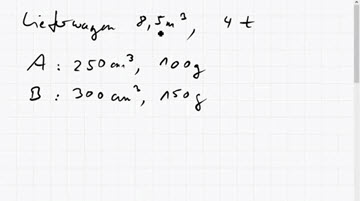 Lieferwagen 8,5m³, 4t
A: 250cm³, 100g
B: 300cm³, 150g